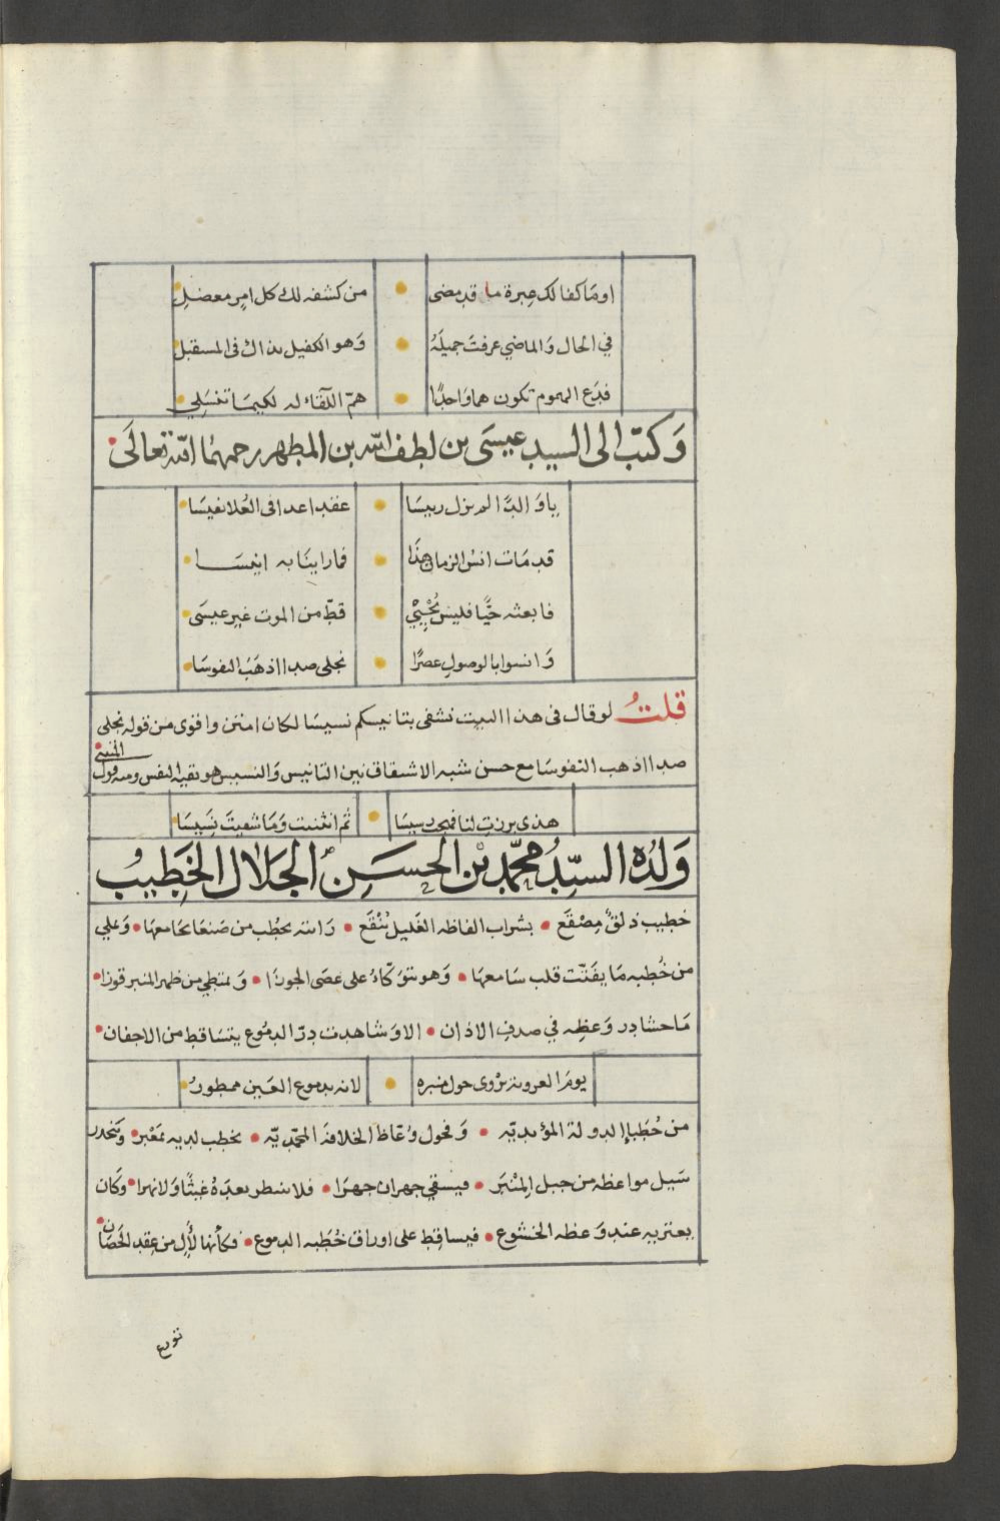 اومَا كفا لك عِبرة ما قد مضى • من كشفه لك كل امرٍ معضلِ
في الحال وَالماضي عرفتَ جميلَهُ • وَهو الكفيل بذاك في المسقبل
فدَع الهموم تكون هما وَاحدًا • همّ اللقاء له لكيمَا تغسَلي
وَكتبَ الى السيد عيسَى بن لطف الله بن المطهر رحمهما الله تعالَى
ياوَالدًا لم يزل رييسَا • عقد اعدا في العُلا نفيسَا
قد مَات انسُ الزمان هذَا • فما راينَا به انيسَا
فابعثه حيًّا فليس يُحْيِيْ • قطّ من الموت غير عيسَى
وَانسوا بالوصول عصرًا • نجلى صدا اذهَبَ النفوسَا
قلتُ لو قال في هذا البيت نشفى بتانيسكم نسيسَا لكان امتن واقوى من قوله نجلى
صدا اذهب النفوسَا مع حسن شبه الاشتقاق بين التانيس وَالنسيس هو بقية النفس ومنه قول المتنبي
هذى برزتِ لنا فهجت رسيسَا • ثم انثنيت وَمَا شفيتَ نَسِيسَا
وَلدُه السيّدُ محمّد بْن الحسَن الجَلاَل الخَطِيبُ
خطيب ذلقٌ مِصْقَع • بشراب الفاظه الغَليل يُنْقَع • رَاسَه يخطُب من صَنعَا بجَامعهَا • وَعلي
من خُطبه مَا يفَتّت قلب سَامعهَا • وَهو متوَكّاءُ على عصَى الجوزَا • وَيمتطي من ظهر المنبر قوزا •
مَا حشا در وَعظِه في صدفِ الاذان • الا وَشاهدت درّ الدمُوع يتسَاقط من الاجفان •
يومَ العروبة يَروى حول منبره • لانه بدموع العَين ممطورُ •
من خُطَبا الدولة المؤيديّه • وَفحول وُعّاظ الخلافة المحمّديّه • يخطب لديه بمَعْبر • وَيتحدر
سَيل مواعظه من جبل المِنْبَر • فيسقي جهران جهرَا • فلا ينظر بعدَهُ غيثًا وَلا نهرا • وَكان
يعتريه عند وَعظه الخشوع • فيسَاقِط على اوراق خُطَبه الدموع • فكأنها لأل من عِقد الحَصَان •
توزع